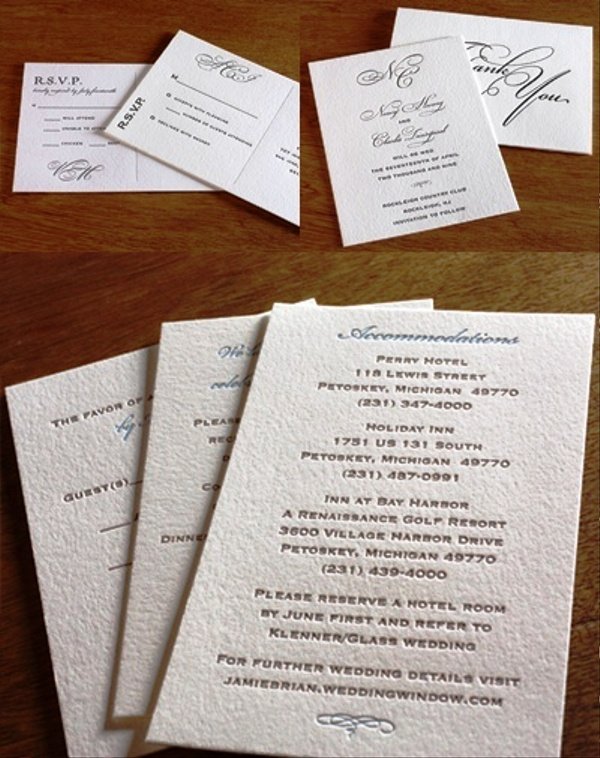 R.S.V.P.
M
WILL ATTEND
UNABLE TO ATTEND
CHICKEN
R.S.V.P.
M
ACCEPTS WITH PLEASURE
NUMBER OF GUESTS ATTENDING
DECLINES WITH REGRET
NC
Nancy
AND
Charles
WILL BE WED
THE SEVENTEENTH OF APRIL
TWO THOUSAND AND NINE
ROCKLEIGH COUNTRY CLUB
ROCKLEIGH, NJ
INVITATION TO FOLLOW
Thank
You
THE FAVOR OF
by
GUEST(S)
We
PLEASE
DINNER
Accommodations
PERRY HOTEL
118 LEWIS STREET
PETOSKEY, MICHIGAN 49770
(231) 347-4000
HOLIDAY INN
1751 US 131 SOUTH
PETOSKEY, MICHIGAN 49770
(231) 487-0991
INN AT BAY HARBOR
A RENAISSANCE GOLF RESORT
3600 VILLAGE HARBOR DRIVE
PETOSKEY, MICHIGAN 49770
(231) 439-4000
PLEASE RESERVE A HOTEL ROOM
BY JUNE FIRST AND REFER TO
KLENNER/GLASS WEDDING
FOR FURTHER WEDDING DETAILS VISIT
JAMIEBRIAN.WEDDINGWINDOW.COM